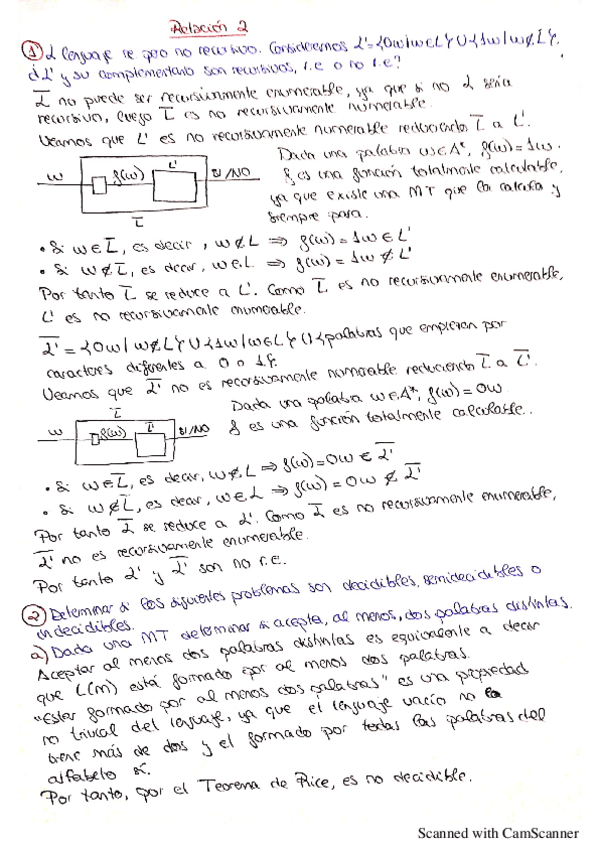 Relación 2
① L lenguaje re pero no recursivo. Consideremos L'={0w/w∈L}∪{1w/w∉L}.
¿L' y su complementario son recursivos, r.e o no r.e?
L̅ no puede ser recursivamente enumerable, ya que si no L sería
recursivo, luego L̅ es no recursivamente numerable.
Veamos que L' es no recursivamente numerable reduciendo L̅ a L'.
Dada una palabra w∈A*, f(w)=1w.
w f(w) L' SI/NO
f es una función totalmente calculable,
ya que existe una MT que la calcula y
siempre para.
L̅
• Si w∈L̅, es decir, w∉L ⇒ f(w)=1w∈L'
• Si w∉L̅, es decir, w∈L ⇒ f(w)=1w∉L'
Por tanto L̅ se reduce a L'. Como L̅ es no recursivamente enumerable,
L' es no recursivamente enumerable.
L̅'={0w/w∉L}∪{1w/w∈L}∪{palabras que empiezan por
caracteres diferentes a 0 o 1}.
Veamos que L̅' no es recursivamente numerable reduciendo L̅ a L̅'.
L̅
Dada una palabra w∈A*, f(w)=0w.
w f(w) L̅' SI/NO
f es una función totalmente calculable.
• Si w∈L̅, es decir, w∉L ⇒ f(w)=0w∈L̅'
• Si w∉L̅, es decir, w∈L ⇒ f(w)=0w∉L̅'
Por tanto L̅ se reduce a L'. Como L̅ es no recursivamente enumerable,
L̅' no es recursivamente enumerable.
Por tanto L' y L̅' son no r.e.
② Determinar si los siguientes problemas son decidibles, semidecidibles o
indecidibles.
a) Dada una MT determinar si acepta, al menos, dos palabras distintas.
Aceptar al menos dos palabras distintas es equivalente a decir
que L(M) está formado por al menos dos palabras.
"Estar formado por al menos dos palabras" es una propiedad
no trivial del lenguaje, ya que el lenguaje vacío no la
tiene más de dos y el formado por todas las palabras del
alfabeto sí.
Por tanto, por el Teorema de Rice, es no decidible.
Scanned with CamScanner